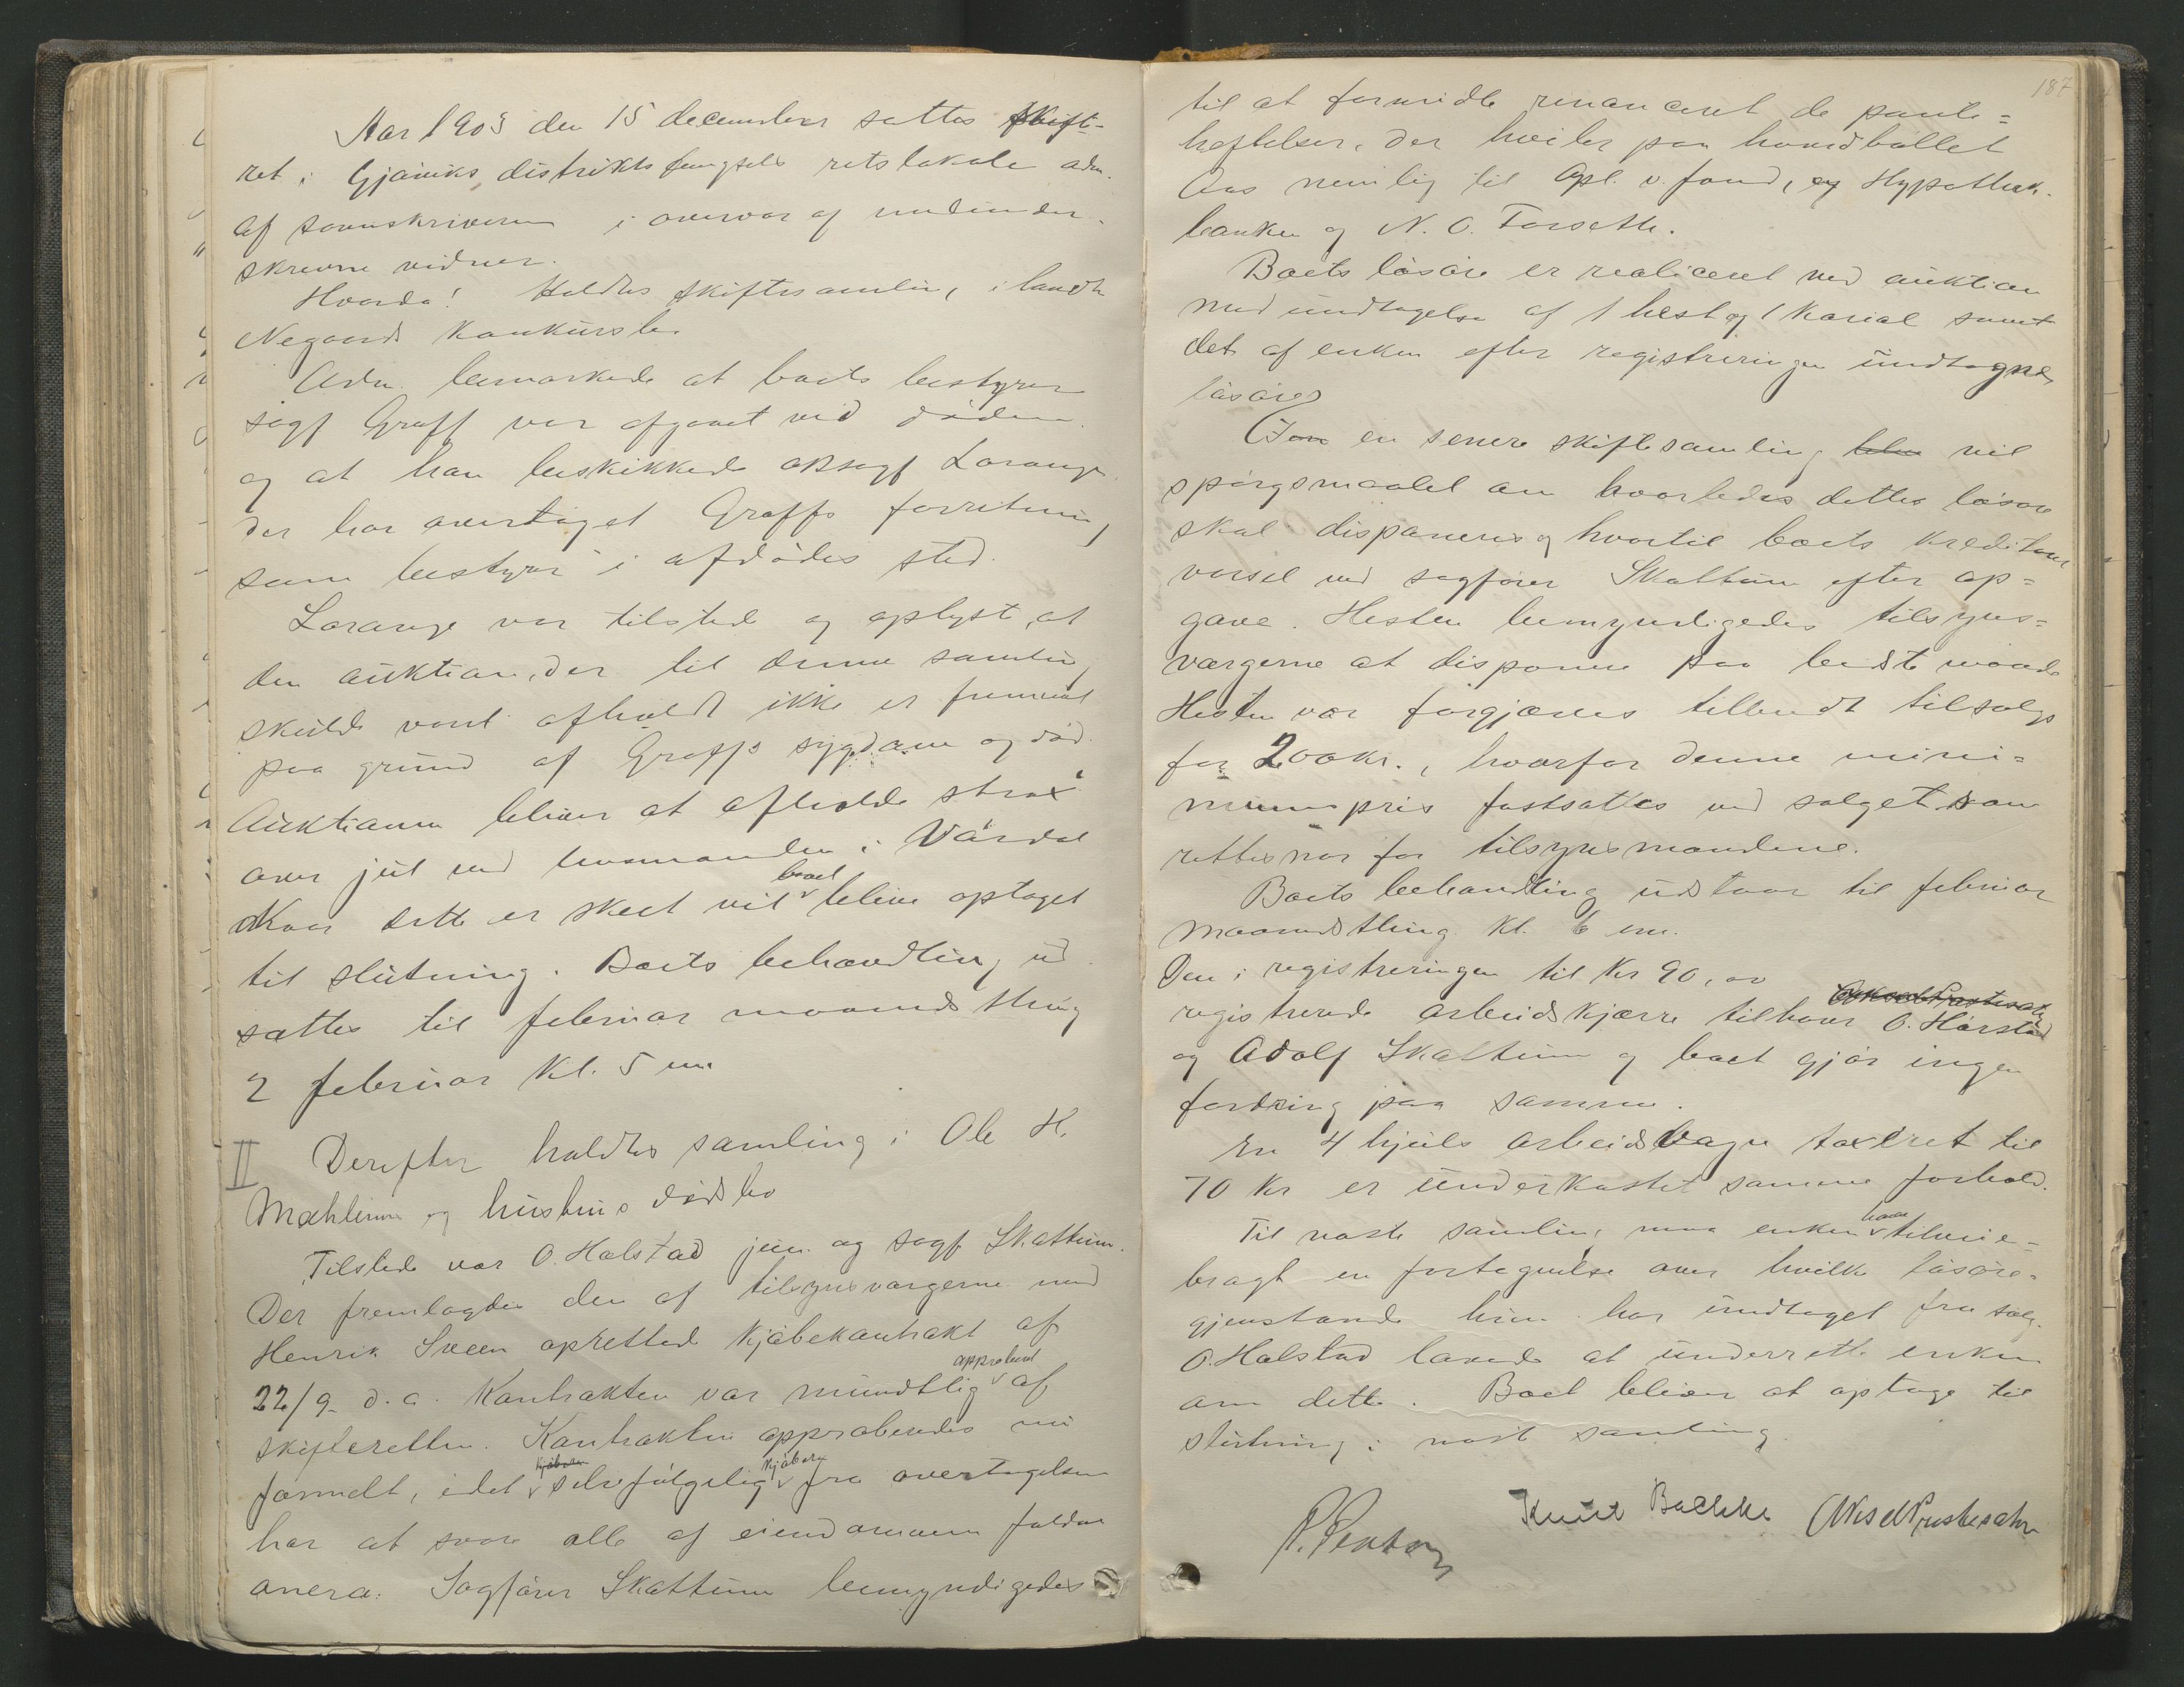 Aar 1903 den 15 december sattes skifte-
ret i Gjøviks distriktsfængsels retslokale adm.
af sorenskriveren i overvær af undender-
skrevne vidner.
Hvorda! Holdtes skiftesamling i
Negaards konkursbo.
Adm. bemærkede at boets bestyrer
sagf Graff var afgaaet ved døden
og at han beskikkede oRsagf Lorange
der har overtaget Graffs forretning
som bestyrer i afdødes sted.
Lorange var tilstede og oplyste, at
den auktion, der til denne samling
skulde været afholdt ikke er fremmet
paa grund af Graffs sygdom og død.
Auktionen bliver at afholde strax
over jul ved lensmanden i Vardal
Naar dette er skeet vil boet blive optaget
til slutning. Boets behandling ud-
sattes til februar maaneds thing
2 februar kl. 5 em
II Derefter holdtes samling i Ole H.
Mæhlums og hustrus dødsbo
Tilstede var O. Halstad jun. og sagf. Skattum.
Der fremlagdes den af tilsynsværgerne med
Henrik Sveen oprettede kjøbekontrakt af
22/9 d.a. Kontrakten var mundtlig approberet af
skifteretten. Kontrakten approberedes nu
formelt, idet kjøberen selvfølgelig kjøberen fra overtagelsen
har at svare alle af eiendommen faldne
onera. Sagfører Skattum bemyndigedes
187
til at formidle renonceret de pante=
heftelser, der hviler paa hovedbøllet
Aas nemlig til Opl. v. fond, og Hypothek-
banken og N. O. Forseth.
Boets løsøre er realiceret ved auktion
med undtagelse af 1 hest og 1 kariol samt
det af enken efter registreringen undtagne
løsøre
For en senere skiftesamling blev vil
spørgsmaalet om hvorledes dette løsøre
skal disponeres og hvortil boets kreditorer
varsel ved sagfører Skattum efter op=
gave. Hesten bemyndigedes tilsyns=
værgerne at disponere paa bedste maade
Hesten var forgjæves tilbudt tilsalgs
for 200 kr., hvorfor denne mini=
mumspris fastsattes ved salget som
rettesnor for tilsynsmændene.
Boets behandling udstaar til februar
maanedsthing kl. 6 em.
Den i registreringen til Kr 90,00
registrerede arbeidskjærre tilhører O. Hårstad
og Adolf Skattum og boet gjør ingen
fordring paa samme.
En 4 hjuls arbeidsvagn taxeret til
70 kr er underkastet samme forhold.
Til næste samling maa enken have tilveie=
bragt en fortegnelse over hvilke løsøre-
gjenstande hun har undtaget fra salg.
O. Halstad lovede at underrette enken
om dette. Boet bliver at optage til
slutning i næste samling.
Knut Bakke